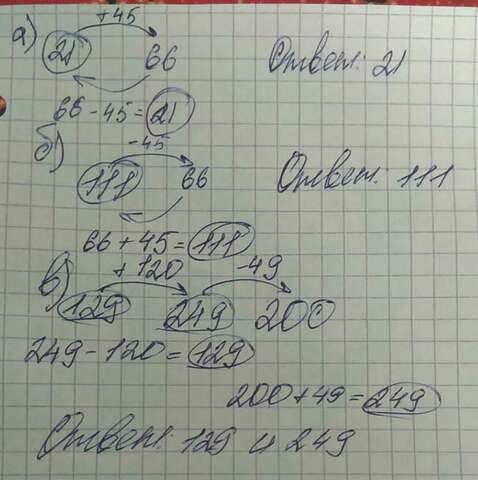 а) +45
21 66 Ответ: 21
66 - 45 = 21
б) -45
111 66 Ответ: 111
66 + 45 = 111
в) +120 -49
129 249 200
249 - 120 = 129
200 + 49 = 249
Ответ: 129 и 249